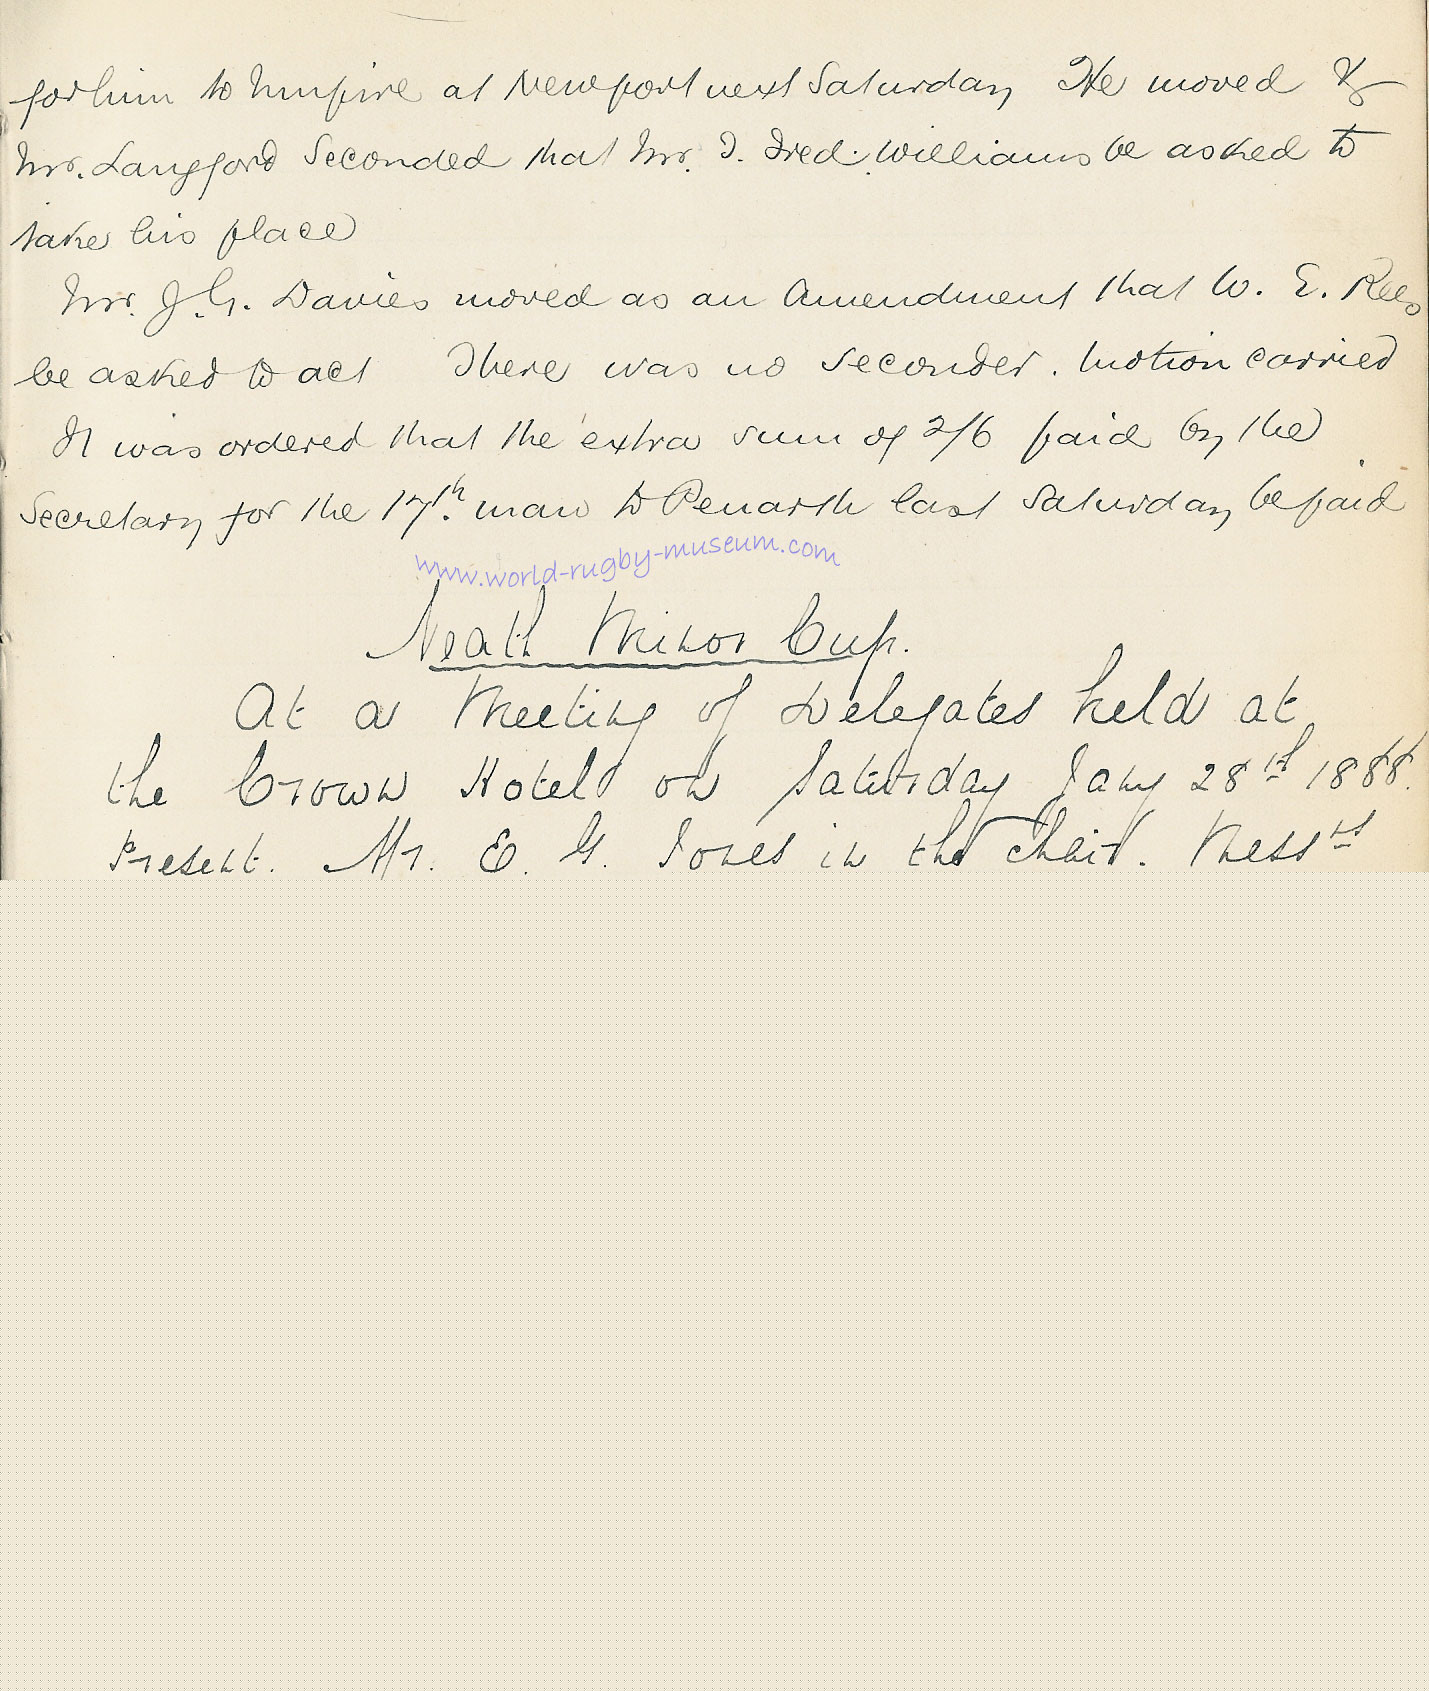 for him to Umpire at Newport next Saturday He moved &
Mr. Langford Seconded that Mr. T. Fred. Williams be asked to
take his place
Mr. J. G. Davies moved as an Amendment that W. E. Rees
be asked to act There was no seconder. Motion carried
It was ordered that the extra sum of 2/6 paid by the
Secretary for the 17th. man to Penarth last Saturday be paid
www.world-rugby-museum.com
Neath Minor Cup.
At a Meeting of Delegates held at
the Crown Hotel on Saturday Jany 28th 1888.
Present. Mr. E. G. Jones in the Chair. Messrs